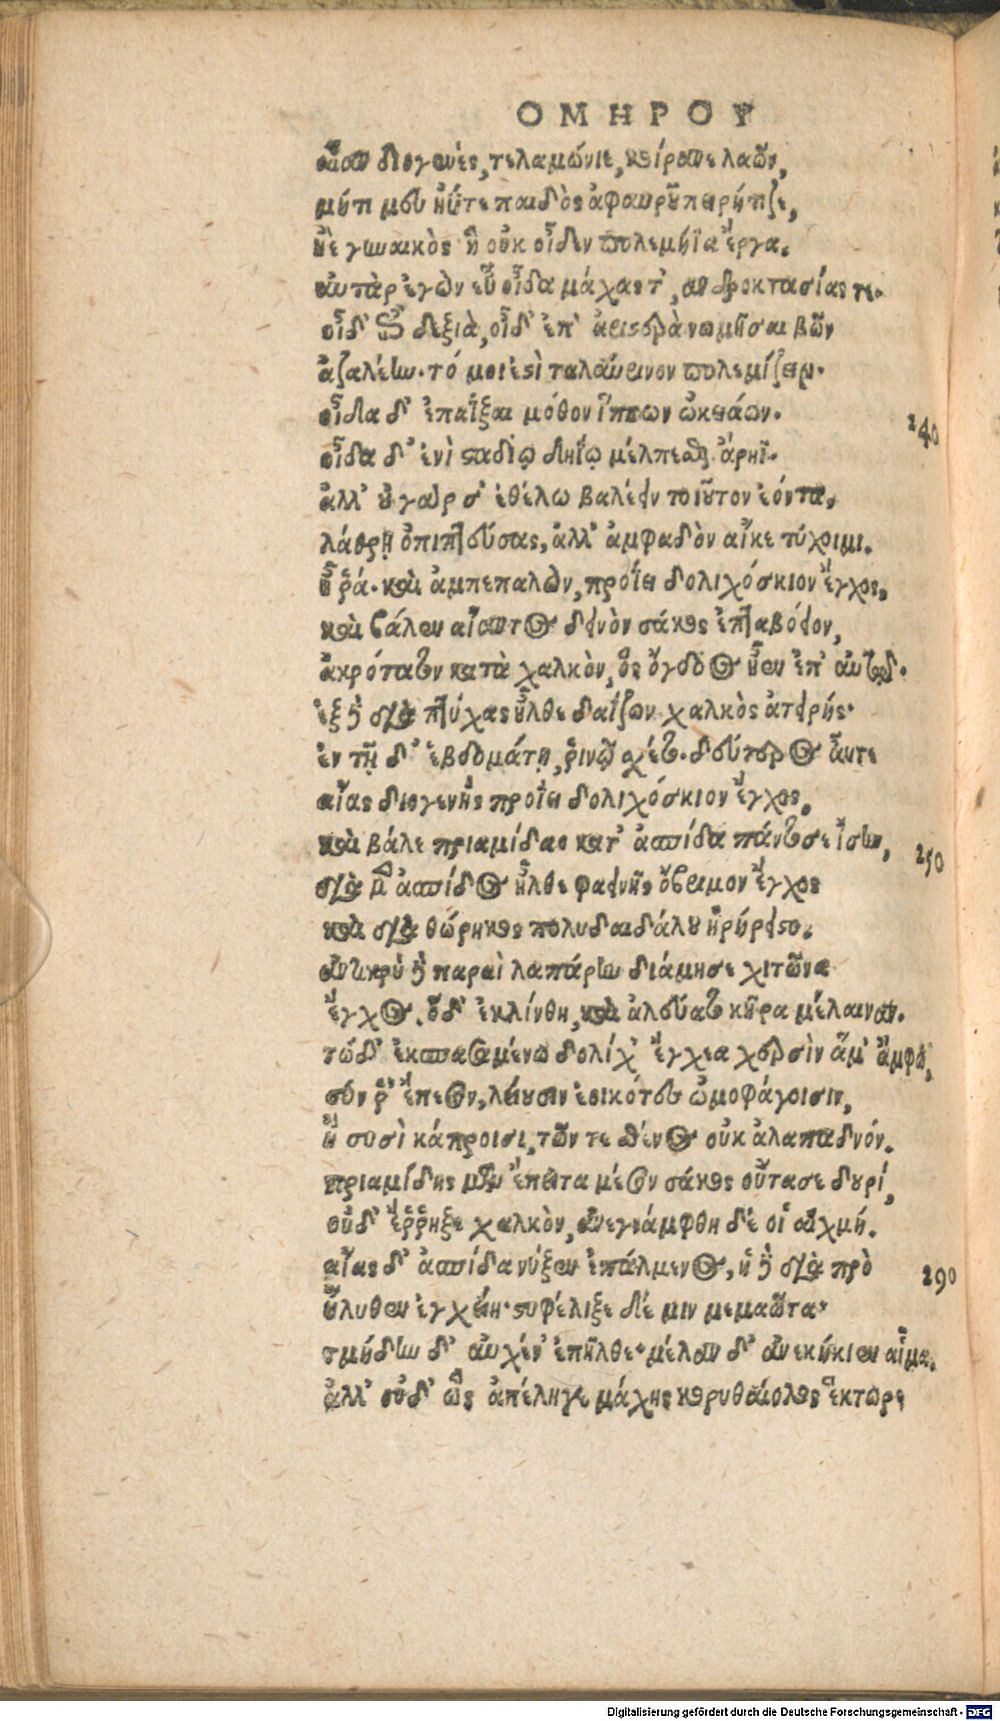 ΟΜΗΡΟΥ
αἶαν διογενὲς, τελαμώνιε, κοίρανε λαῶν,
μήτι μευ ἠΰτε παιδὸς ἀφαυροῦ πειρήτιζε,
ἠὲ γυναικὸς ἣ οὐκ οἶδεν πολεμήϊα ἔργα.
αὐτὰρ ἐγὼν εὖ οἶδα μάχας τ', ἀνδροκτασίας τε.
οἶδ' ἐπὶ δεξιὰ, οἶδ' ἐπ' ἀριστερὰ νωμῆσαι βῶν
ἀζαλέην. τό μοι ἐστὶ ταλαύρινον πολεμίζειν.
οἶδα δ' ἐπαΐξαι μόθον ἵππων ὠκειάων.
240
οἶδα δ' ἐνὶ σταδίῳ δηΐῳ μέλπεσθαι ἄρηϊ.
ἀλλ' οὐ γάρ σ' ἐθέλω βαλέειν τοιοῦτον ἐόντα,
λάθρῃ ὀπιπτεύσας, ἀλλ' ἀμφαδὸν αἴκε τύχοιμι.
ἦ ῥά. καὶ ἀμπεπαλὼν, προΐει δολιχόσκιον ἔγχος,
καὶ βάλεν αἴαντος δεινὸν σάκος ἑπταβόειον,
ἀκρότατον κατὰ χαλκὸν, ὃς ὄγδοος ἦεν ἐπ' αὐτῷ.
ἓξ δὲ διὰ πτύχας ἦλθε δαΐζων χαλκὸς ἀτειρής.
ἐν τῇ δ' ἑβδομάτῃ, ῥινῷ σχέτο. δεύτερος αὖτε
αἴας διογενὴς προΐει δολιχόσκιον ἔγχος,
καὶ βάλε πριαμίδαο κατ' ἀσπίδα πάντοσε ἴσην,
250
διὰ μὲν ἀσπίδος ἦλθε φαεινῆς ὄβριμον ἔγχος
καὶ διὰ θώρηκος πολυδαιδάλου ἠρήρειστο.
ἀντικρὺ δὲ παραὶ λαπάρην διάμησε χιτῶνα
ἔγχος. ὃδ' ἐκλίνθη, καὶ ἀλεύατο κῆρα μέλαιναν.
τώδ' ἐκσπασαμένω δολίχ' ἔγχεα χερσὶν ἅμ' ἄμφω,
σύν ῥ' ἔπεσον, λείουσιν ἐοικότες ὠμοφάγοισιν,
ἢ συσὶ κάπροισι, τῶν τε σθένος οὐκ ἀλαπαδνόν.
πριαμίδης μὲν ἔπειτα μέσον σάκος οὔτασε δουρί,
οὐδ' ἔῤῥηξε χαλκὸν, ἀνεγνάμφθη δέ οἱ αἰχμή.
αἴας δ' ἀσπίδα νύξεν ἐπάλμενος, ἡ δὲ διὰ πρὸ
290
ἤλυθεν ἐγχείη. στυφέλιξε δέ μιν μεμαῶτα.
τμήδην δ' αὐχέν' ἐπῆλθε. μέλαν δ' ἀνεκήκιεν αἷμα.
ἀλλ' οὐδ' ὣς ἀπέληγε μάχης κορυθαίολος ἕκτωρ.
Digitalisierung gefördert durch die Deutsche Forschungsgemeinschaft - DFG